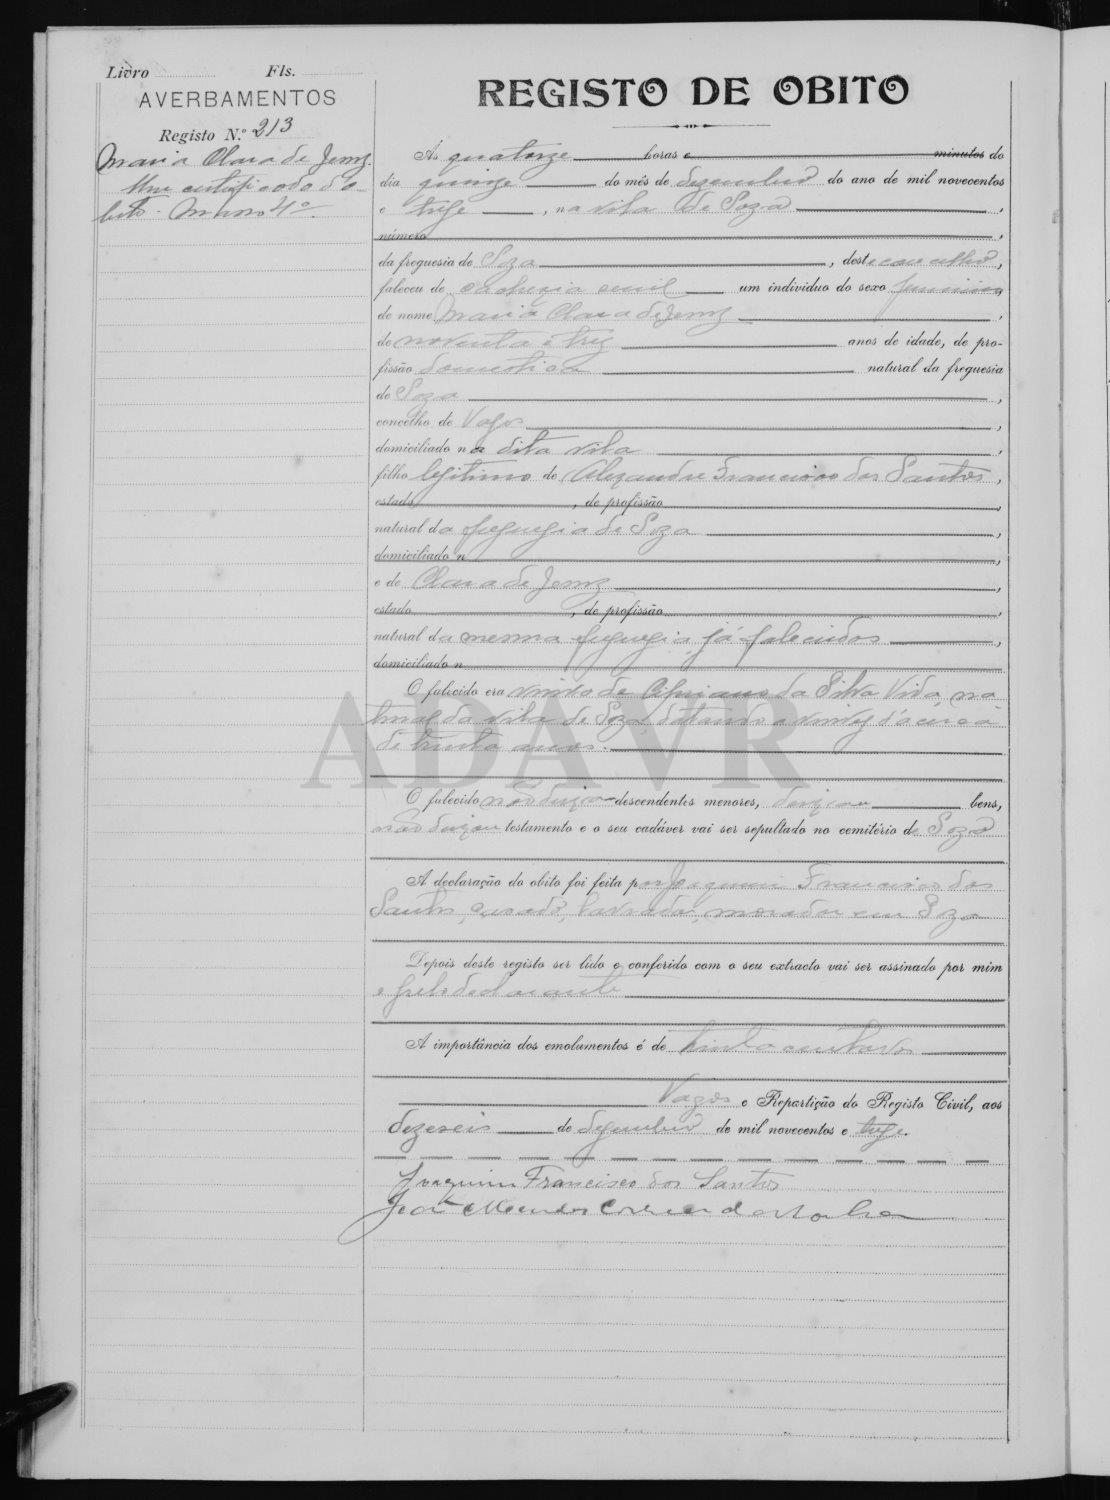 Livro Fls.
AVERBAMENTOS
Registo N.º 213
Maria Clara de Jesus.
Um certificado d'o
bito. Masso 4º
REGISTO DE OBITO
Ás quatorze horas e minutos do
dia quinze do mês de dezembro do ano de mil novecentos
e treze, na vila de Soza,
número,
da freguesia de Soza, deste concelho,
faleceu de cachexia senil um individuo do sexo feminino,
de nome Maria Clara de Jesus,
de noventa e trez anos de idade, de pro-
fissão domestica natural da freguesia
de Soza,
concelho de Vagos,
domiciliado na dita vila,
filho legitimo de Alexandre Francisco dos Santos,
estado, de profissão,
natural da freguezia de Soza,
domiciliado n,
e de Clara de Jesus,
estado, de profissão,
natural da mesma freguezia, já falecidos,
domiciliado n
O falecido era viuva de Cipriano da Silva Vida, na
tural da vila de Soza, datando a viuvez d'ácerca
de trinta anos.
O falecido não deixa descendentes menores, deixou bens,
não deixou testamento e o seu cadáver vai ser sepultado no cemitério de Soza
A declaração do obito foi feita por Joaquim Francisco dos
Santos, casado, lavrador, morador em Soza
Depois deste registo ser lido e conferido com o seu extracto vai ser assinado por mim
e pelo declarante
A importância dos emolumentos é de trinta centavos
Vagos e Repartição do Registo Civil, aos
dezeseis de dezembro de mil novecentos e treze.
Joaquim Francisco dos Santos
João Mendes Correia da Rocha
ADAVR